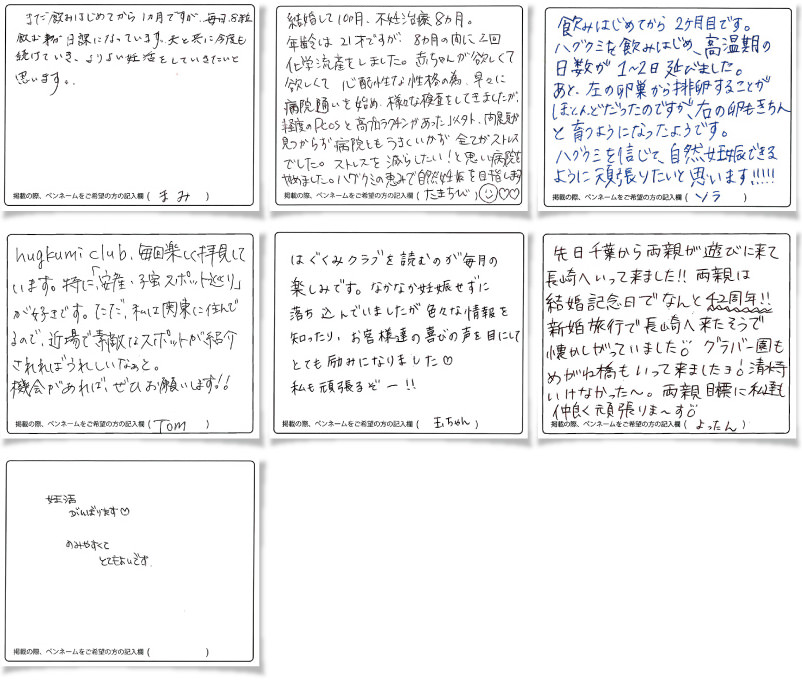 まだ飲みはじめてから1カ月ですが、毎日8粒
飲む事が日課になっています。夫と共に今度も
続けていき、よりよい妊活をしていきたいと
思います。
掲載の際、ペンネームをご希望の方の記入欄 ( まみ )
結婚して10ヶ月、不妊治療8カ月。
年齢は21才ですが、8カ月の内に二回
化学流産をしました。赤ちゃんが欲しくて
欲しくて心配性な性格の為、早々に
病院通いを始め、様々な検査をしてきましたが、
軽度のPcosと高プロラクチンがあった以外、内臓
見つからず病院ともうまくいかず全てがストレス
でした。ストレスを減らしたい!と思い病院を
やめました。ハグクミの恵みで自然妊娠を目指します
掲載の際、ペンネームをご希望の方の記入欄 ( たまちび )
飲みはじめてから2ケ月目です。
ハグクミを飲みはじめ、高温期の
日数が1~2日延びました。
あと、左の卵巣から排卵することが
ほとんどだったのですが、右の卵もきちん
と育つようになったようです。
ハグクミを信じて、自然妊娠できる
ように頑張りたいと思います!!!!!
掲載の際、ペンネームをご希望の方の記入欄 ( ソラ )
hugkumi club、毎回楽しく拝見して
います。特に「安産・子宝スポット巡り」
が好きです。ただ、私は関東に住んで
るので、近場で素敵なスポットが紹介
されればうれしいなぁと。
機会があれば、ぜひお願いします!!
掲載の際、ペンネームをご希望の方の記入欄 ( Tom )
はぐくみクラブを読むのが毎月の
楽しみです。なかなか妊娠せずに
落ち込んでいましたが色々な情報を
知ったり、お客様達の喜びの声を目にして
とても励みになりました♡
私も頑張るぞー!!
掲載の際、ペンネームをご希望の方の記入欄 ( 玉ちゃん )
先日千葉から両親が遊びに来て
長崎へいって来ました!! 両親は
結婚記念日でなんと42周年!!
新婚旅行で長崎へ来たそうで
懐かしがっていました グラバー園も
めがね橋もいって来ましたヨ! 清水寺
いけなかった〜。両親目標に私達も
仲良く頑張りま〜す
掲載の際、ペンネームをご希望の方の記入欄 ( よったん )
妊活
がんばります♡
のみやすくて
とてもよいです。
掲載の際、ペンネームをご希望の方の記入欄 ( )